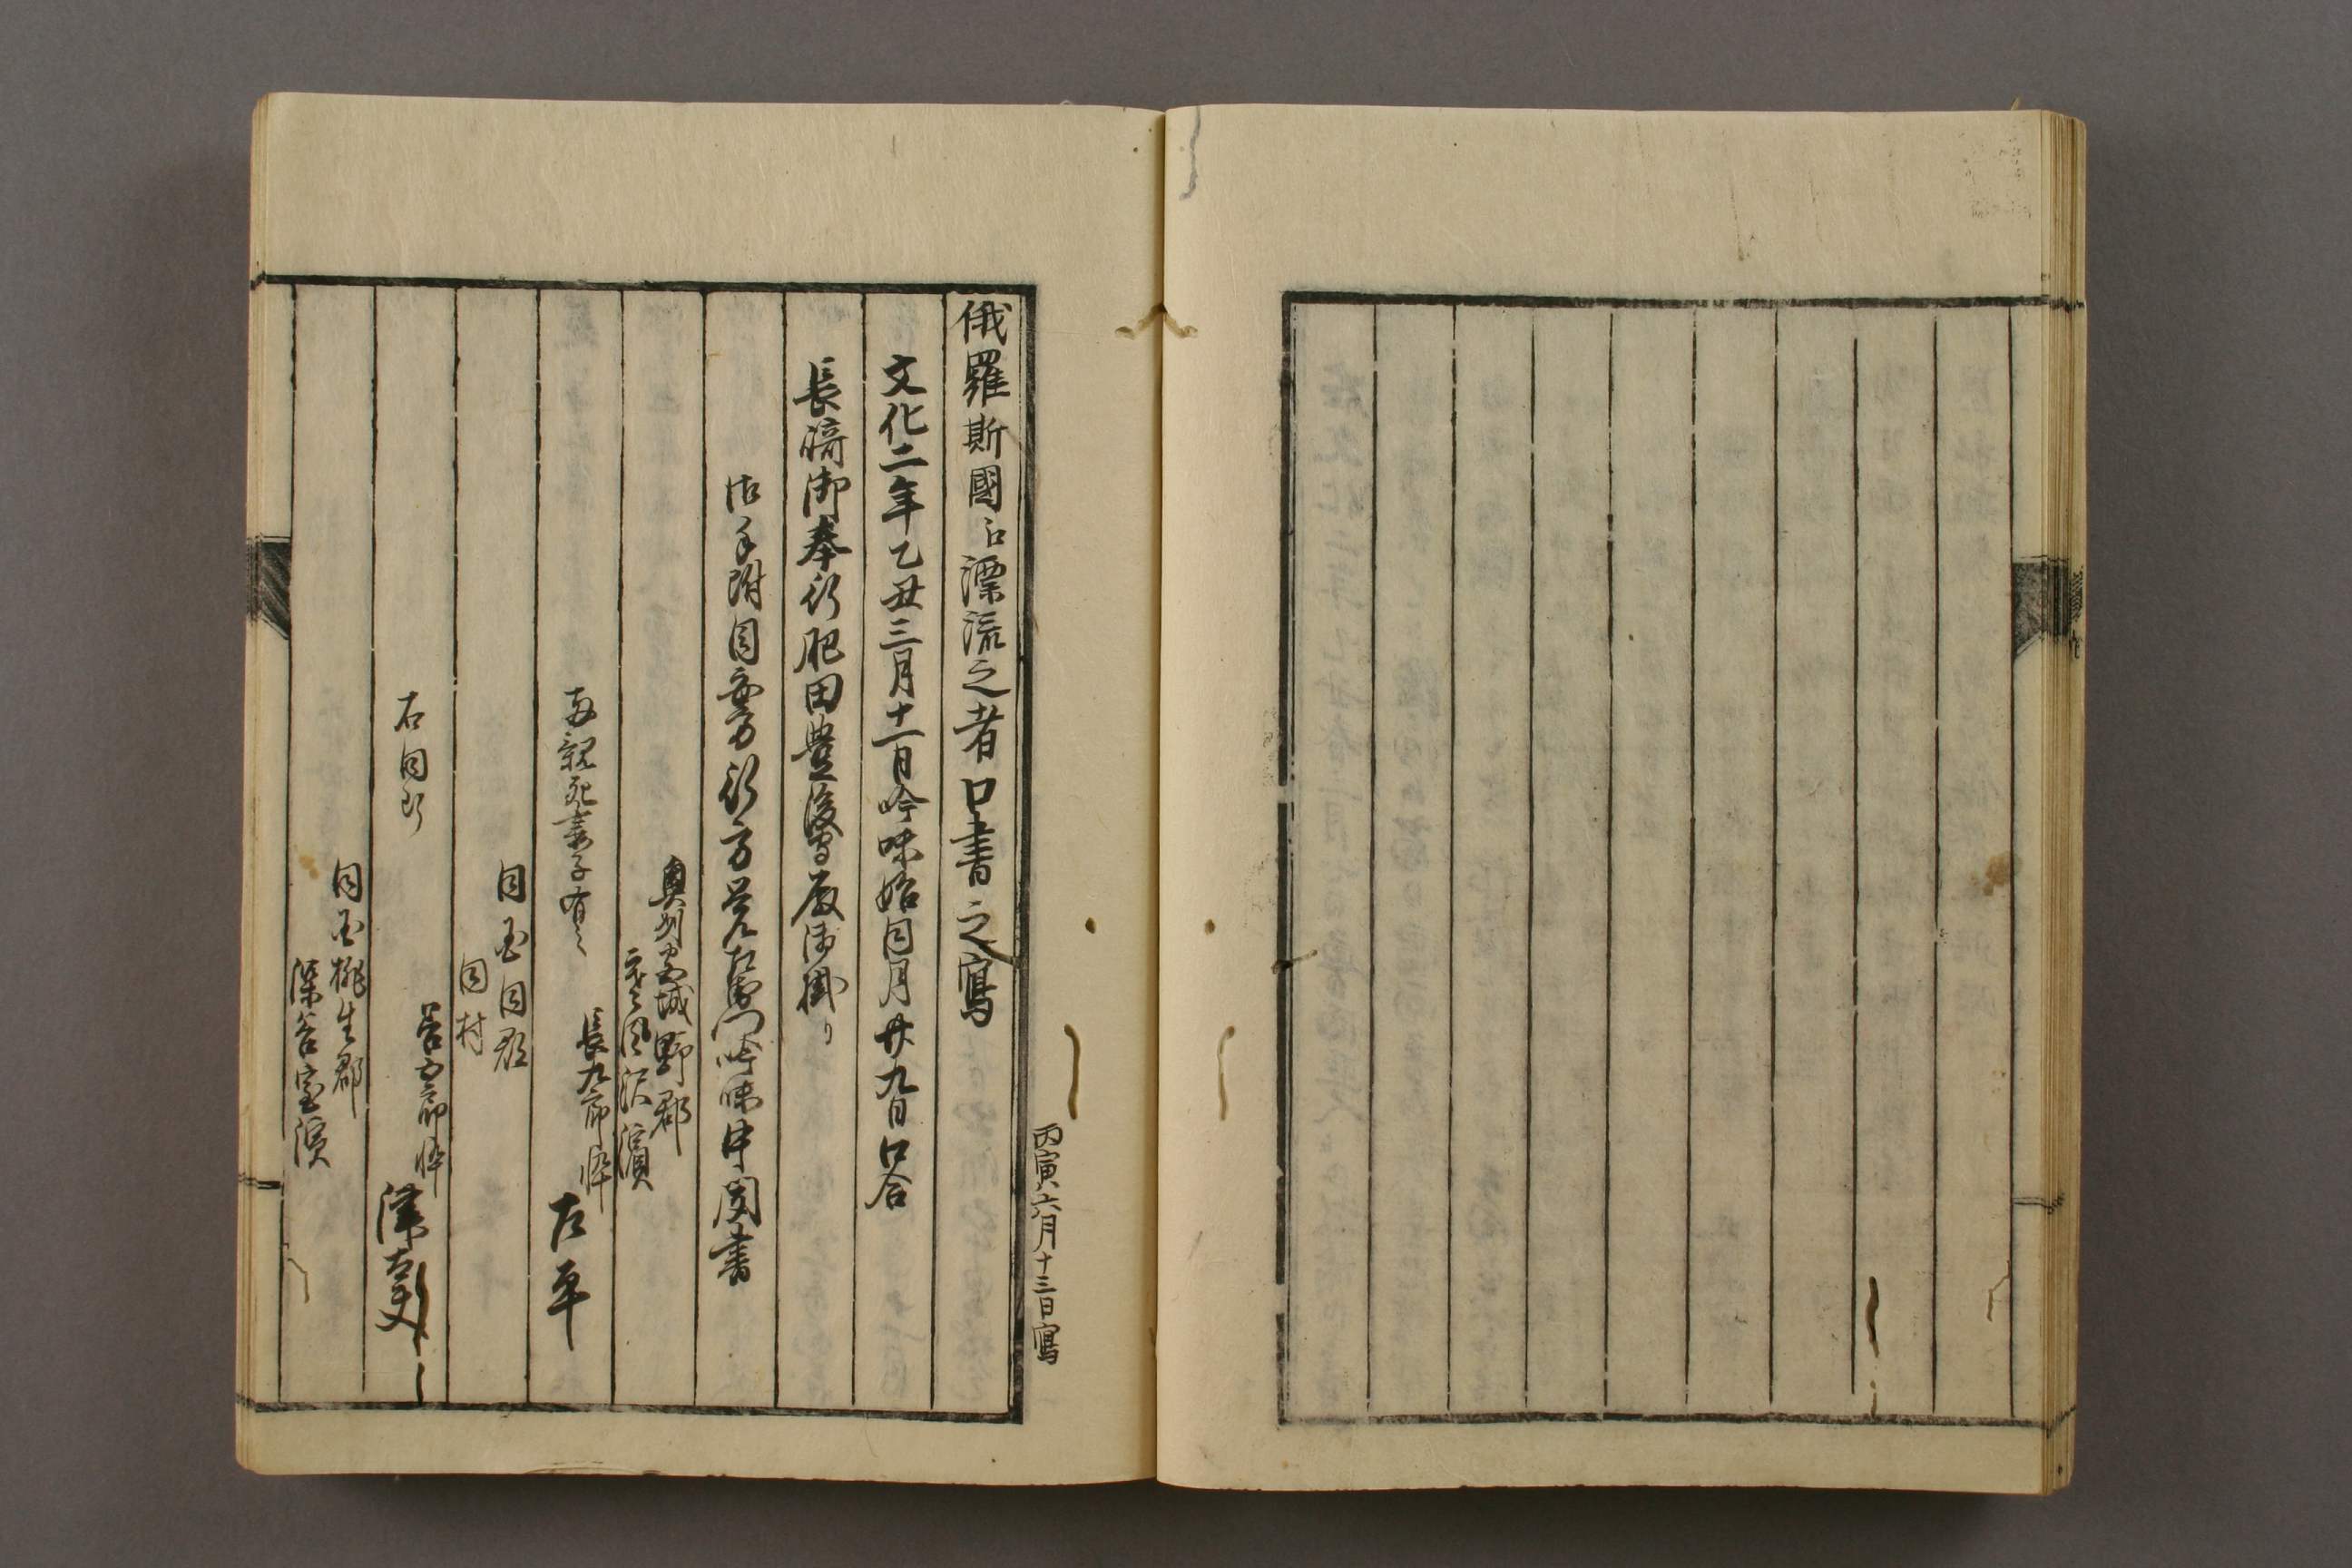 丙寅六月十三日寫
俄羅斯國ゟ漂流之者口書之寫
文化二年乙丑三月十一日吟味始同月廿九日口合
長﨑御奉行肥田豊後守殿御掛り
御手附同心方行方覚左衛門吟味中聞書
奥州宮城野郡
寒風沢濱
両親死妻子有之
長九郎忰
左平
同国同郡
同村
右同断
善五郎忰
津太夫
同国桃生郡
深谷室濱